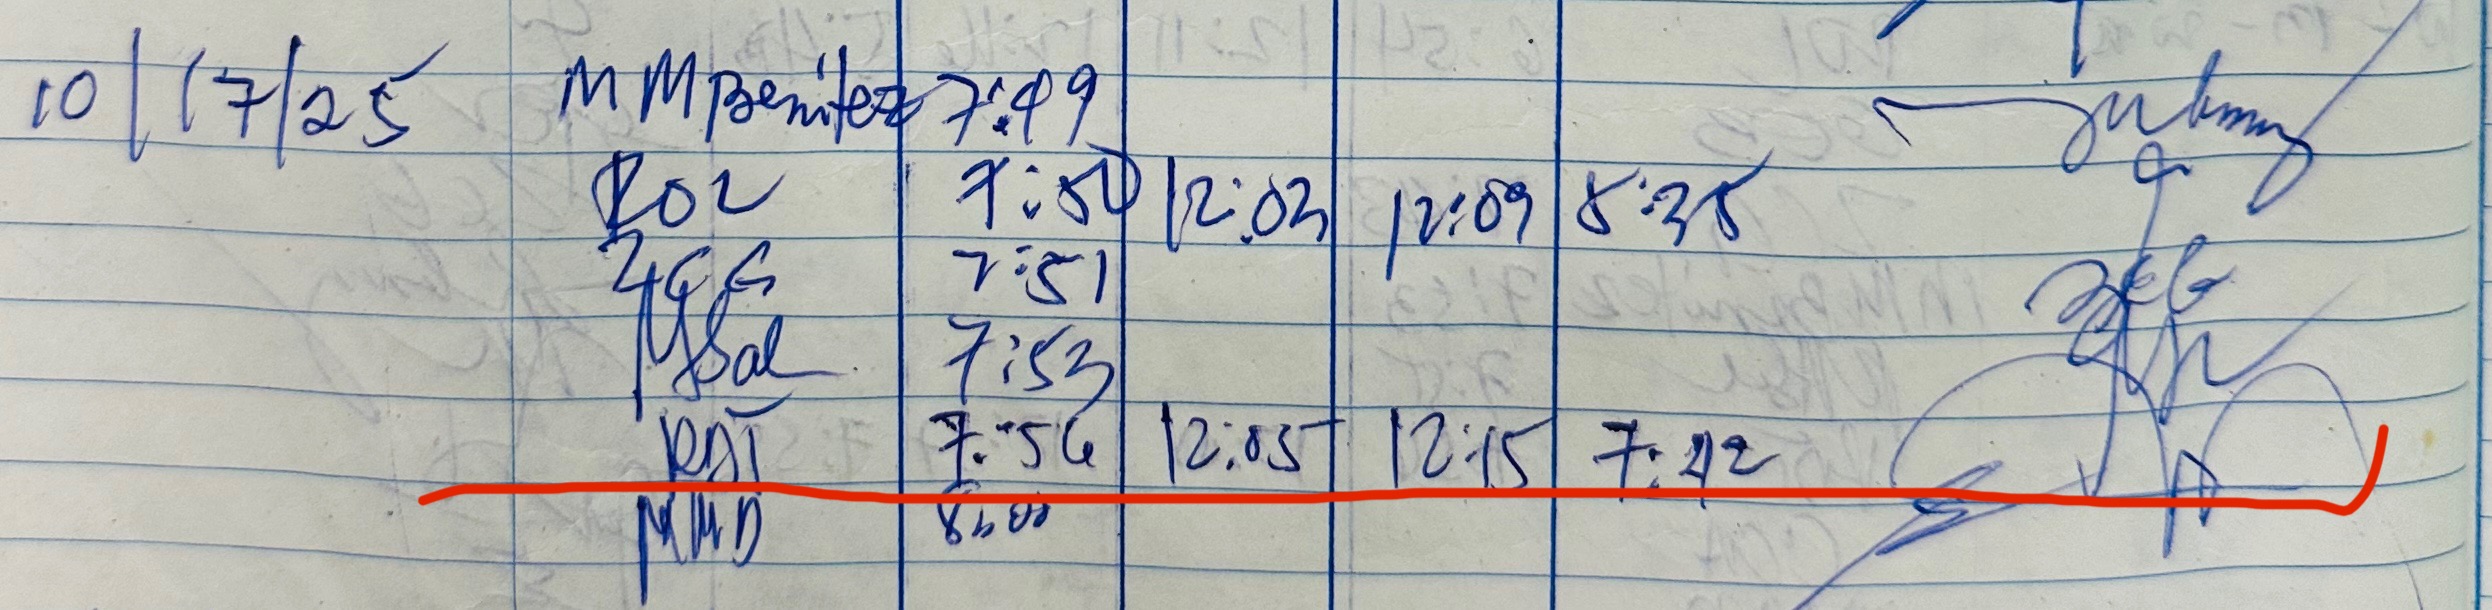 10/17/25 MMBenitez 7:49
ROL 7:50 12:03 12:09 5:35
ZCG 7:51 ZCG
7:53
RDT 7:56 12:05 12:15 7:42
MMD 8:00